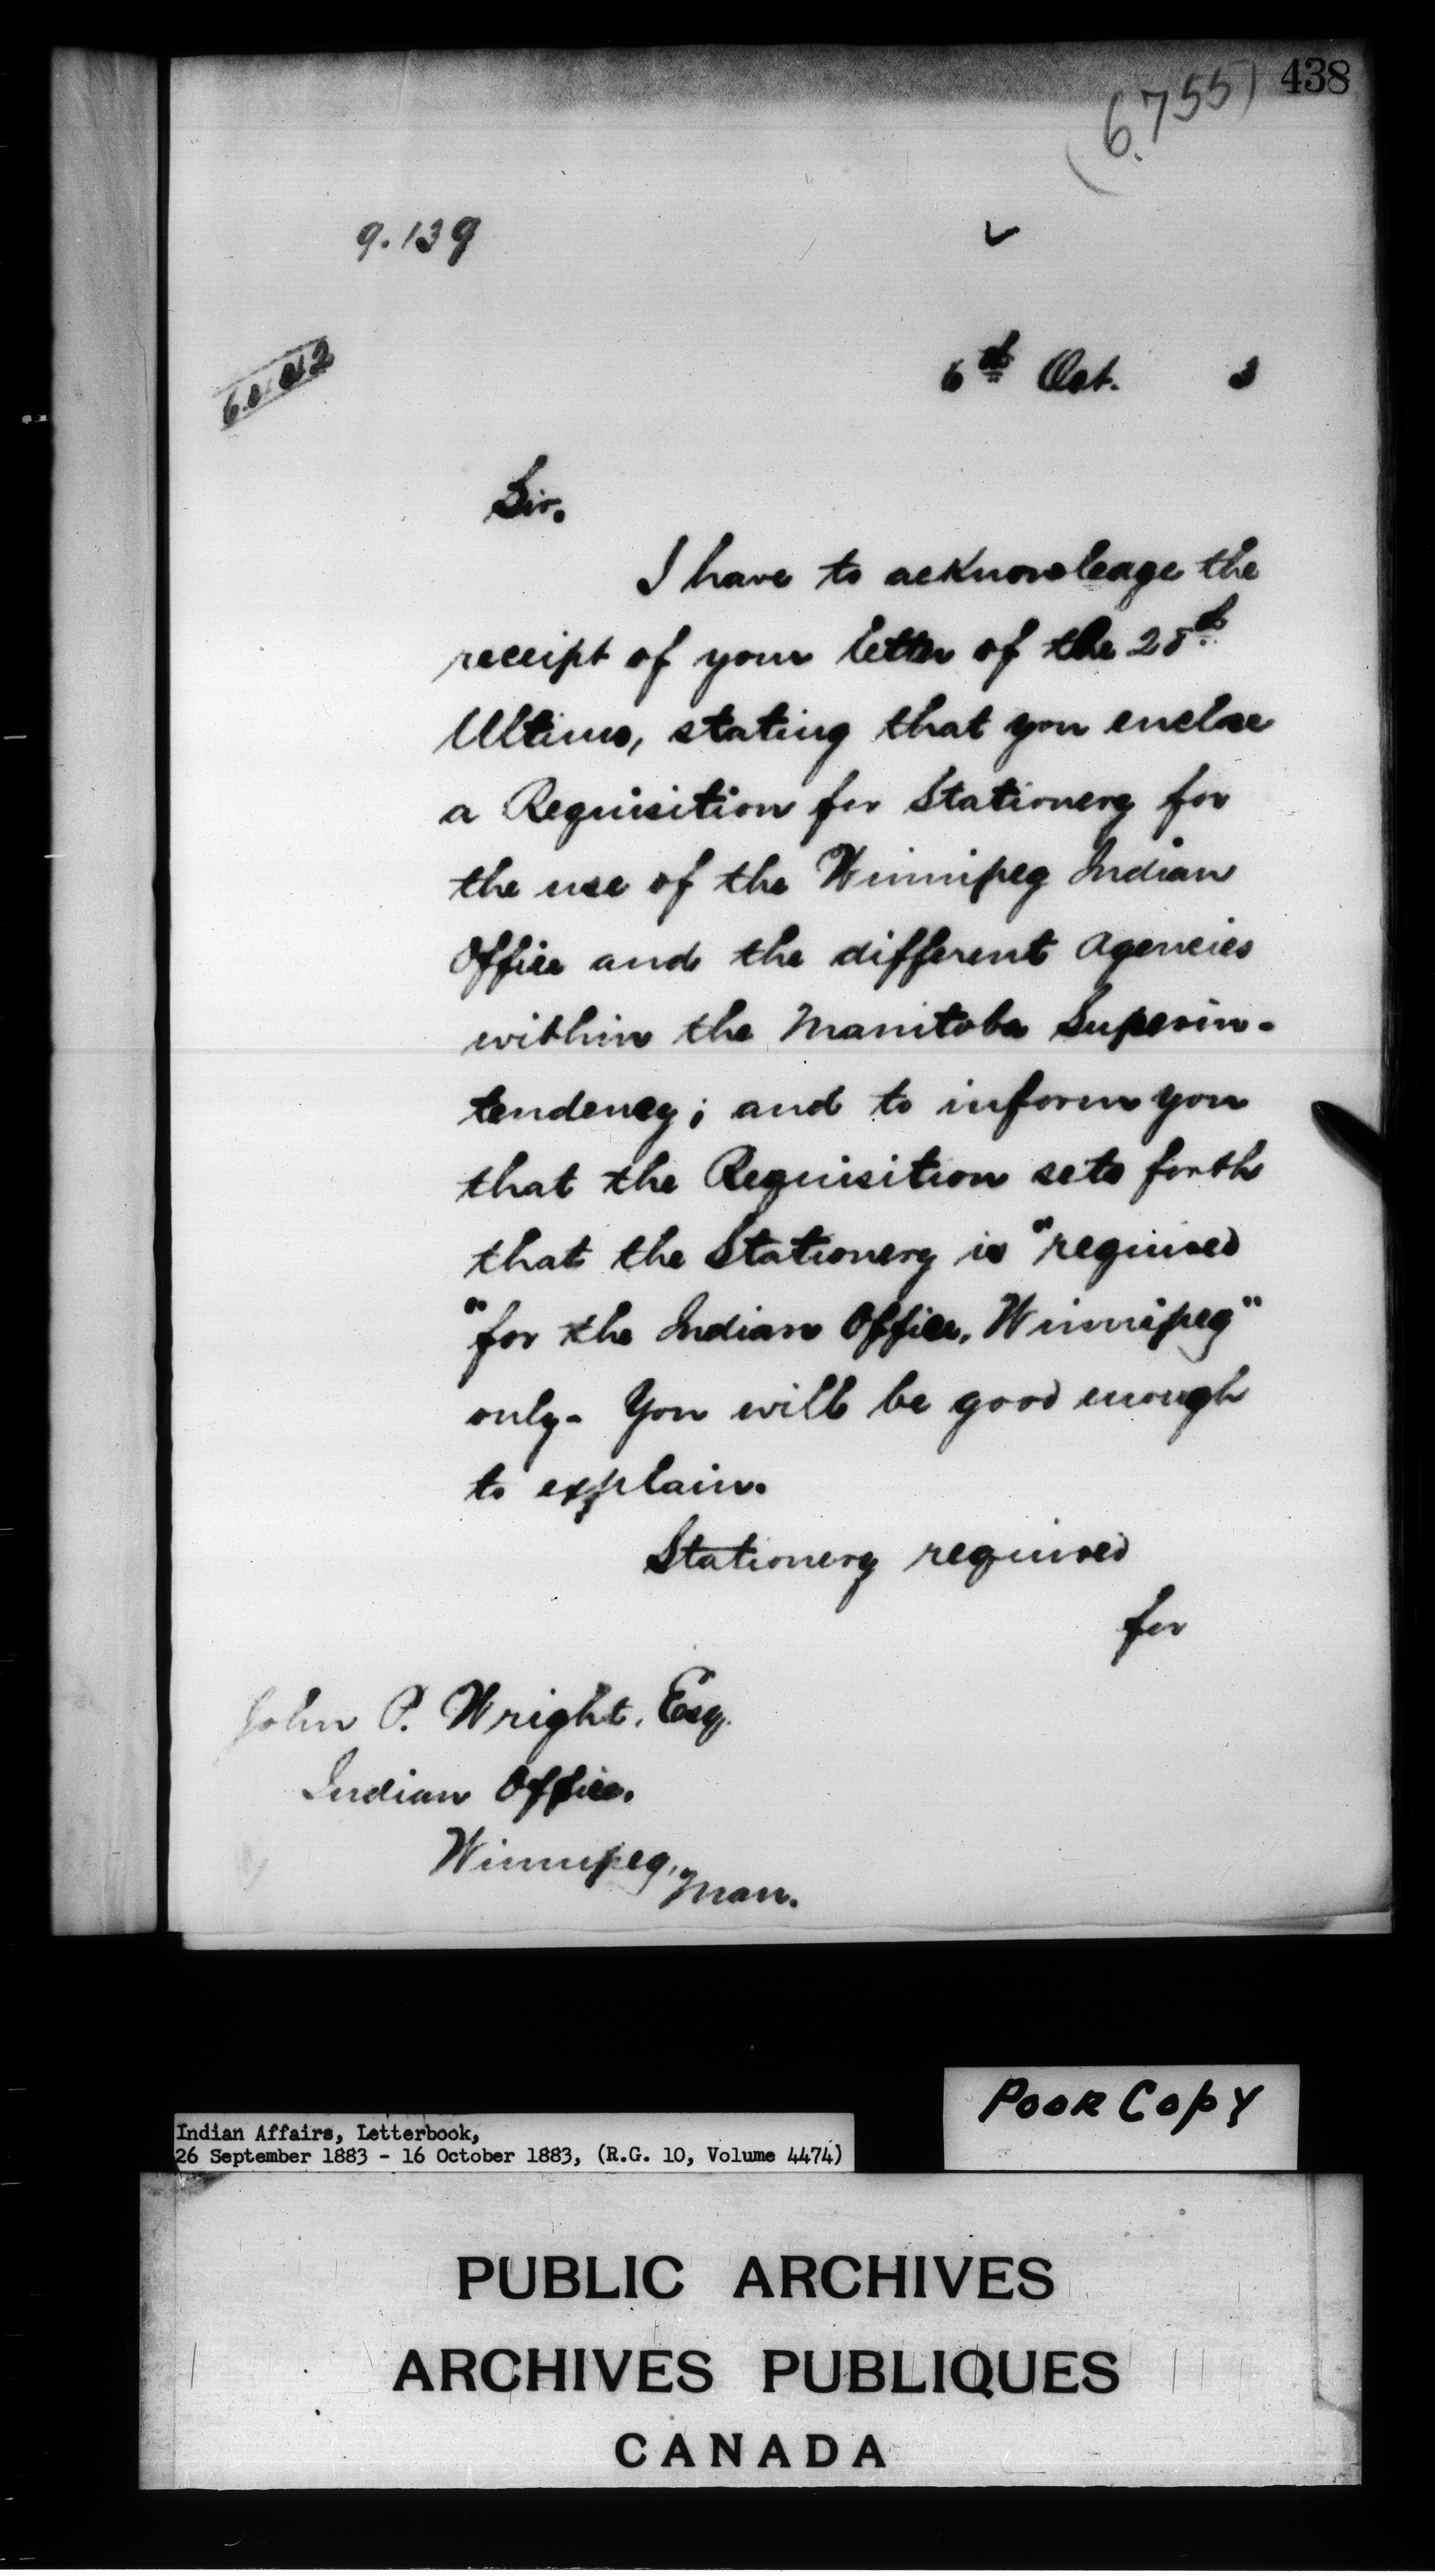 438
(6,755)
9.139
6th Oct. 3
Sir.
I have to acknowledge the
receipt of your letter of the 28th
Ultimo, stating that you enclose
a Requisition for Stationery for
the use of the Winnipeg Indian
Office and the different Agencies
within the Manitoba Superin-
tendency; and to inform you
that the Requisition sets forth
that the Stationery is "required
"for the Indian Office, Winnipeg"
only. You will be good enough
to explain.
Stationery required
for
John P. Wright, Esq.
Indian Office.
Winnipeg,
Man.
POOR COPY
Indian Affairs, Letterbook,
26 September 1883 - 16 October 1883, (R.G. 10, Volume 4474)
PUBLIC ARCHIVES
ARCHIVES PUBLIQUES
CANADA